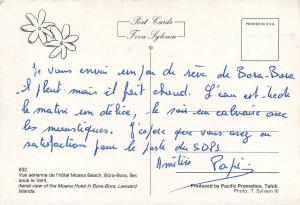 Post Cards
Teva Sylvain
PRINTED IN U.S.A.
Je vous envoi un peu de rêve de Bora-Bora.
il pleut mais il fait chaud. L'eau est tiède
le matin un délice, le soir un calvaire avec
les moustiques. J'espère que vous avez eu
satisfaction pour le SDPS
Amitiés Papi
832
Vue aérienne de l'hôtel Moana Beach, Bora-Bora, îles
sous le Vent.
Aerial view of the Moana Hotel in Bora-Bora, Leeward
Islands.
Produced by Pacific Promotion, Tahiti.
Photo: T. Sylvain ®